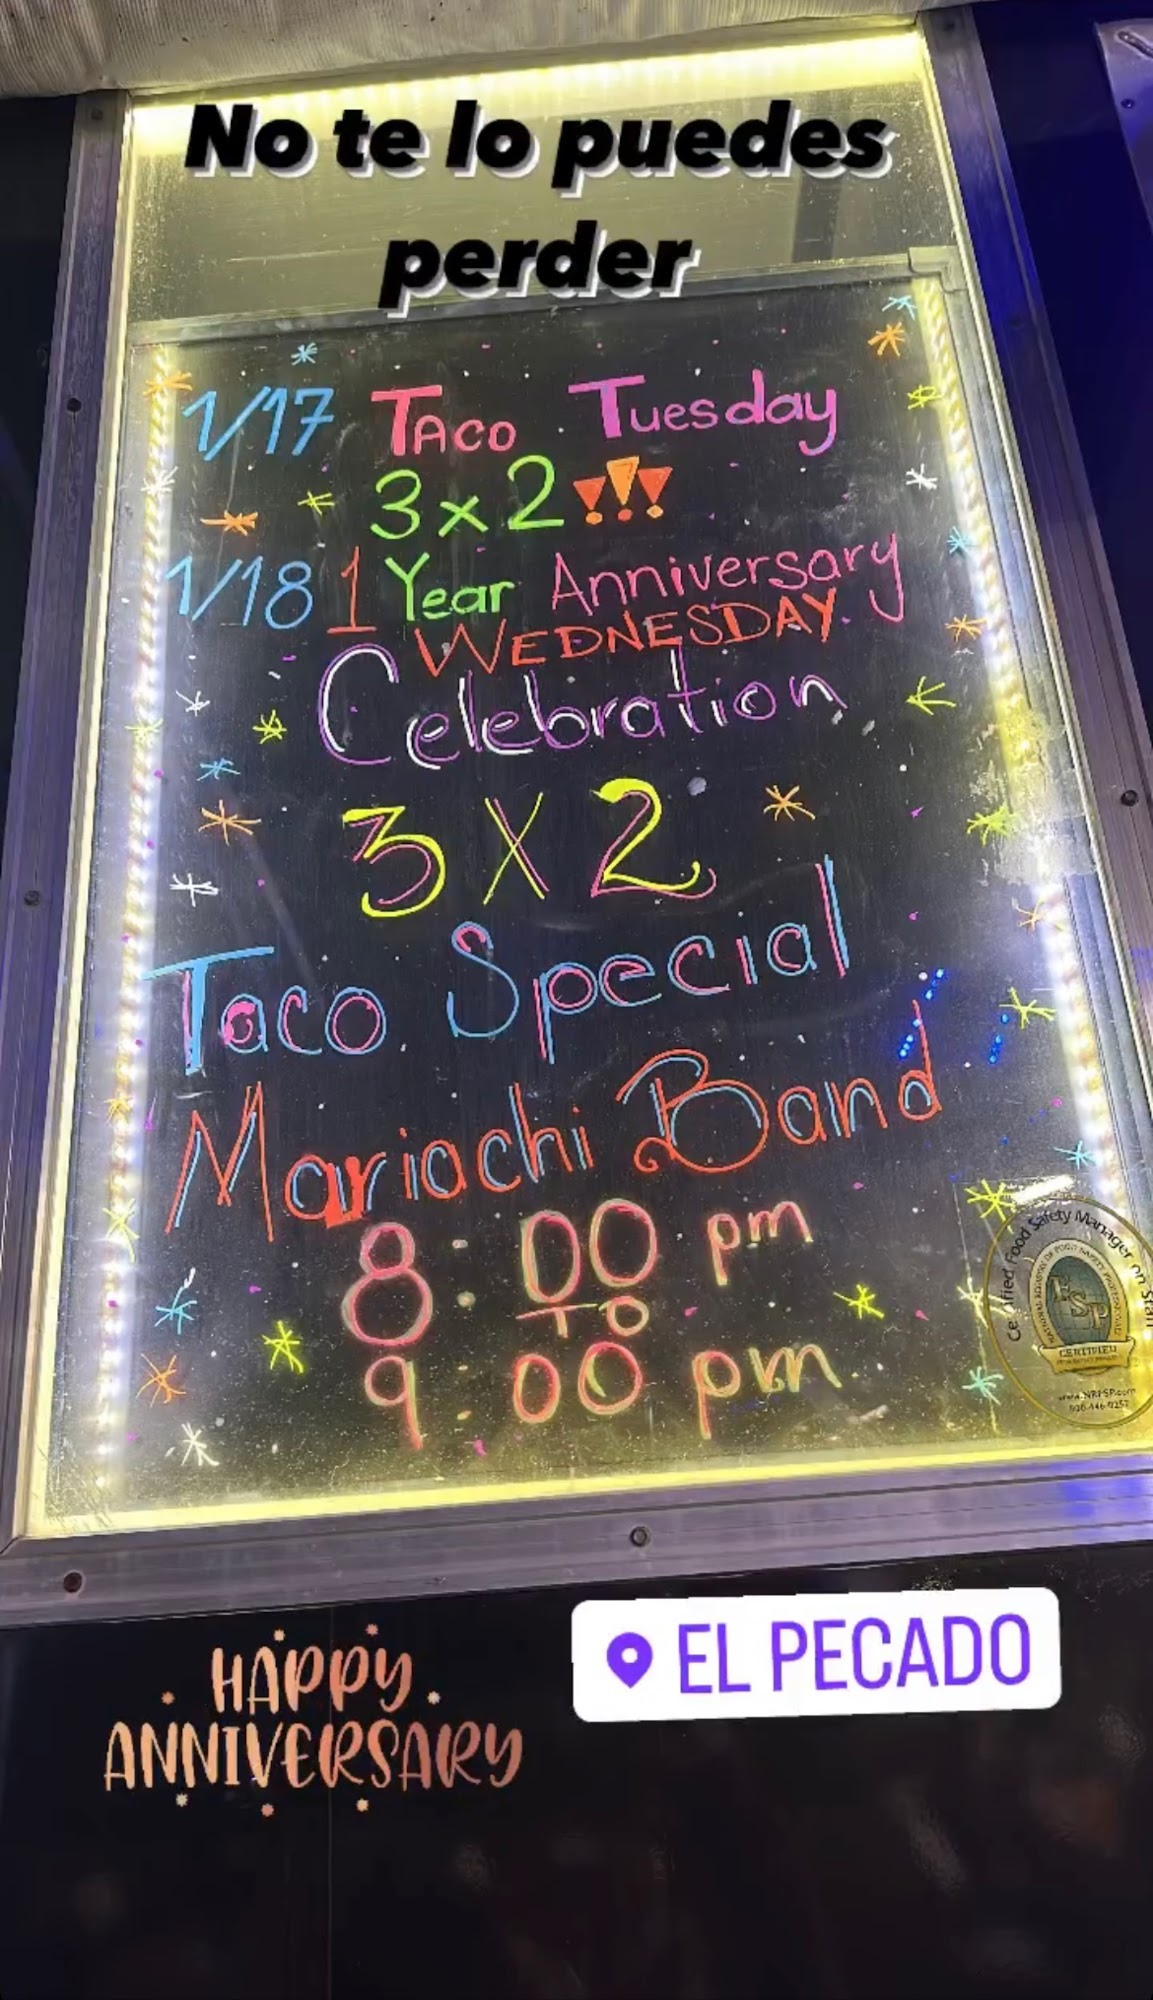 No te lo puedes
perder
1/17 Taco Tuesday
3x2!!!
1/18 1 Year Anniversary
WEDNESDAY
Celebration
3 X 2
Taco Special
Mariachi Band
8:00 pm
TO
9:00 pm
Certified Food Safety Manager on Staff
NATIONAL REGISTRY OF FOOD SAFETY PROFESSIONALS
FSP
CERTIFIED
www.NRFSP.com
HAPPY
ANNIVERSARY
EL PECADO